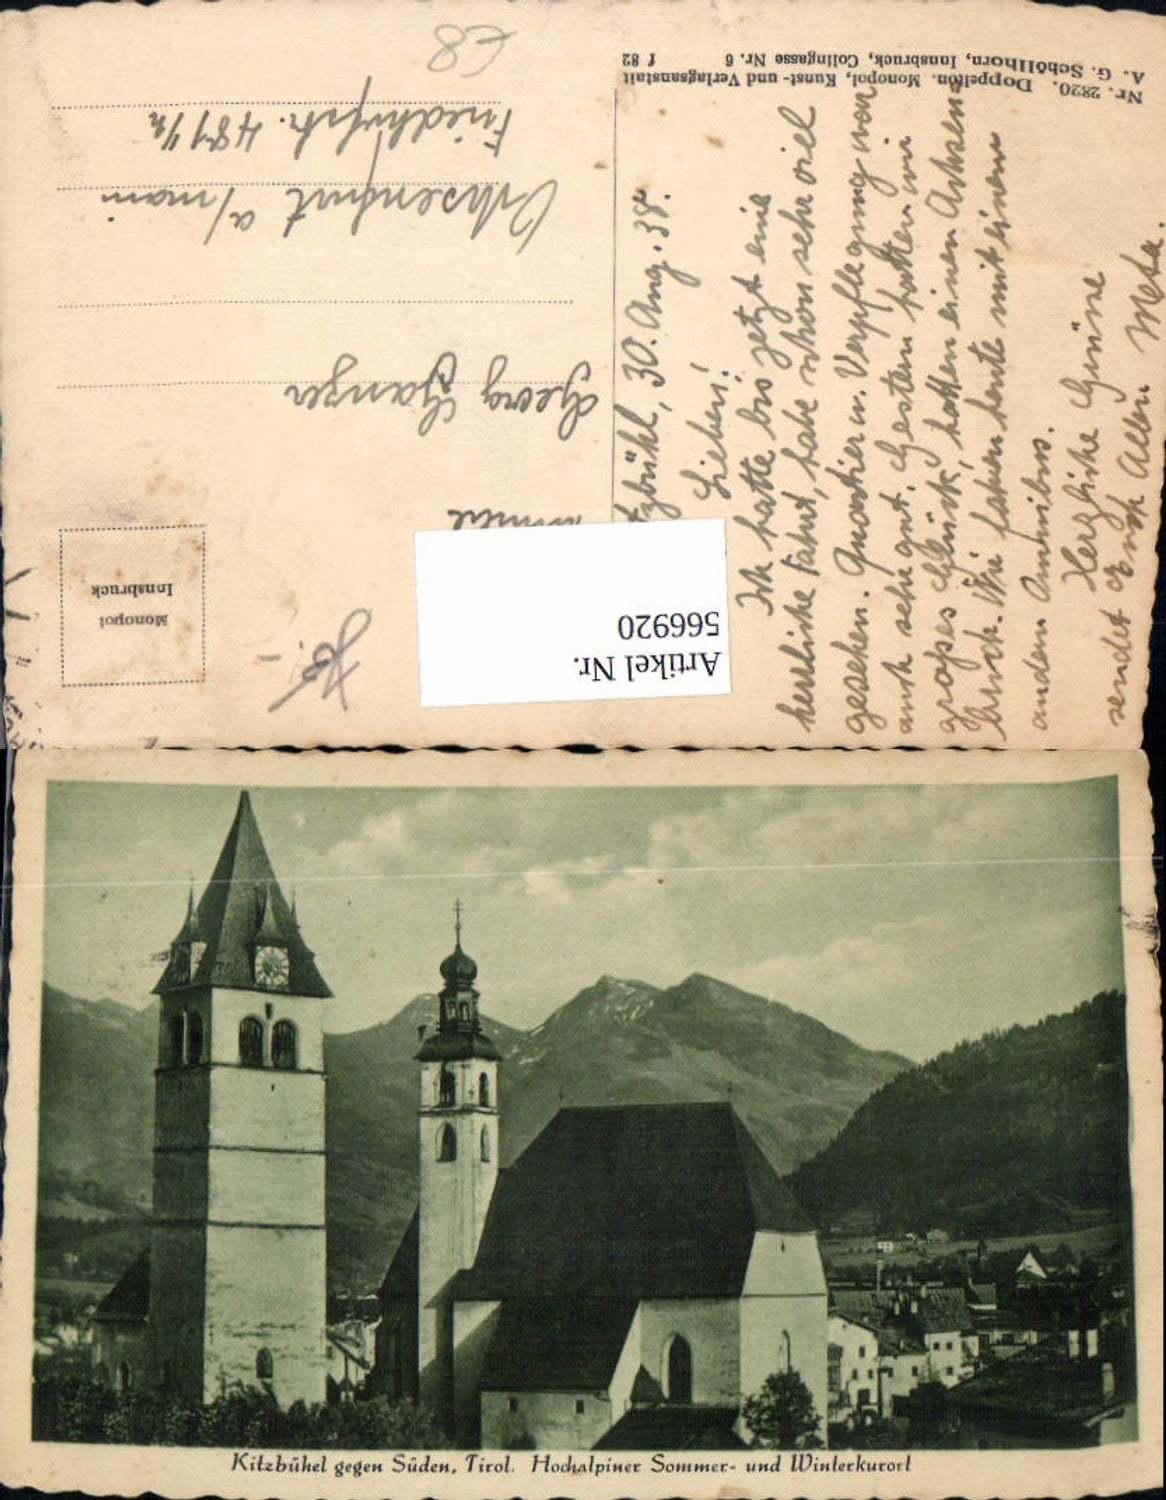 Nr. 2820. Doppelton. Monopol, Kunst- und Verlagsanstalt
A. G. Schöllhorn, Innsbruck, Colingasse Nr. 6 f 82
tzbühl, 30. Aug. 38.
Lieben!
Ich hatte bis jetzt eine
herrliche Fahrt, habe schon sehr viel
gesehen. Quartier u. Verpflegung war
auch sehr gut. Gestern hatten wir
großes Glück, hatten einen Achsen
bruch. Wir fahren heute mit einem
andern Omnibus.
Herzliche Grüsse
sendet Euch Allen Meta.
Georg Ganzer
Ochsenfurt a/main
Friedrichstr. 481 1/2
€8
Monopol
Innsbruck
Artikel Nr.
566920
Kitzbühel gegen Süden, Tirol. Hochalpiner Sommer- und Winterkurort